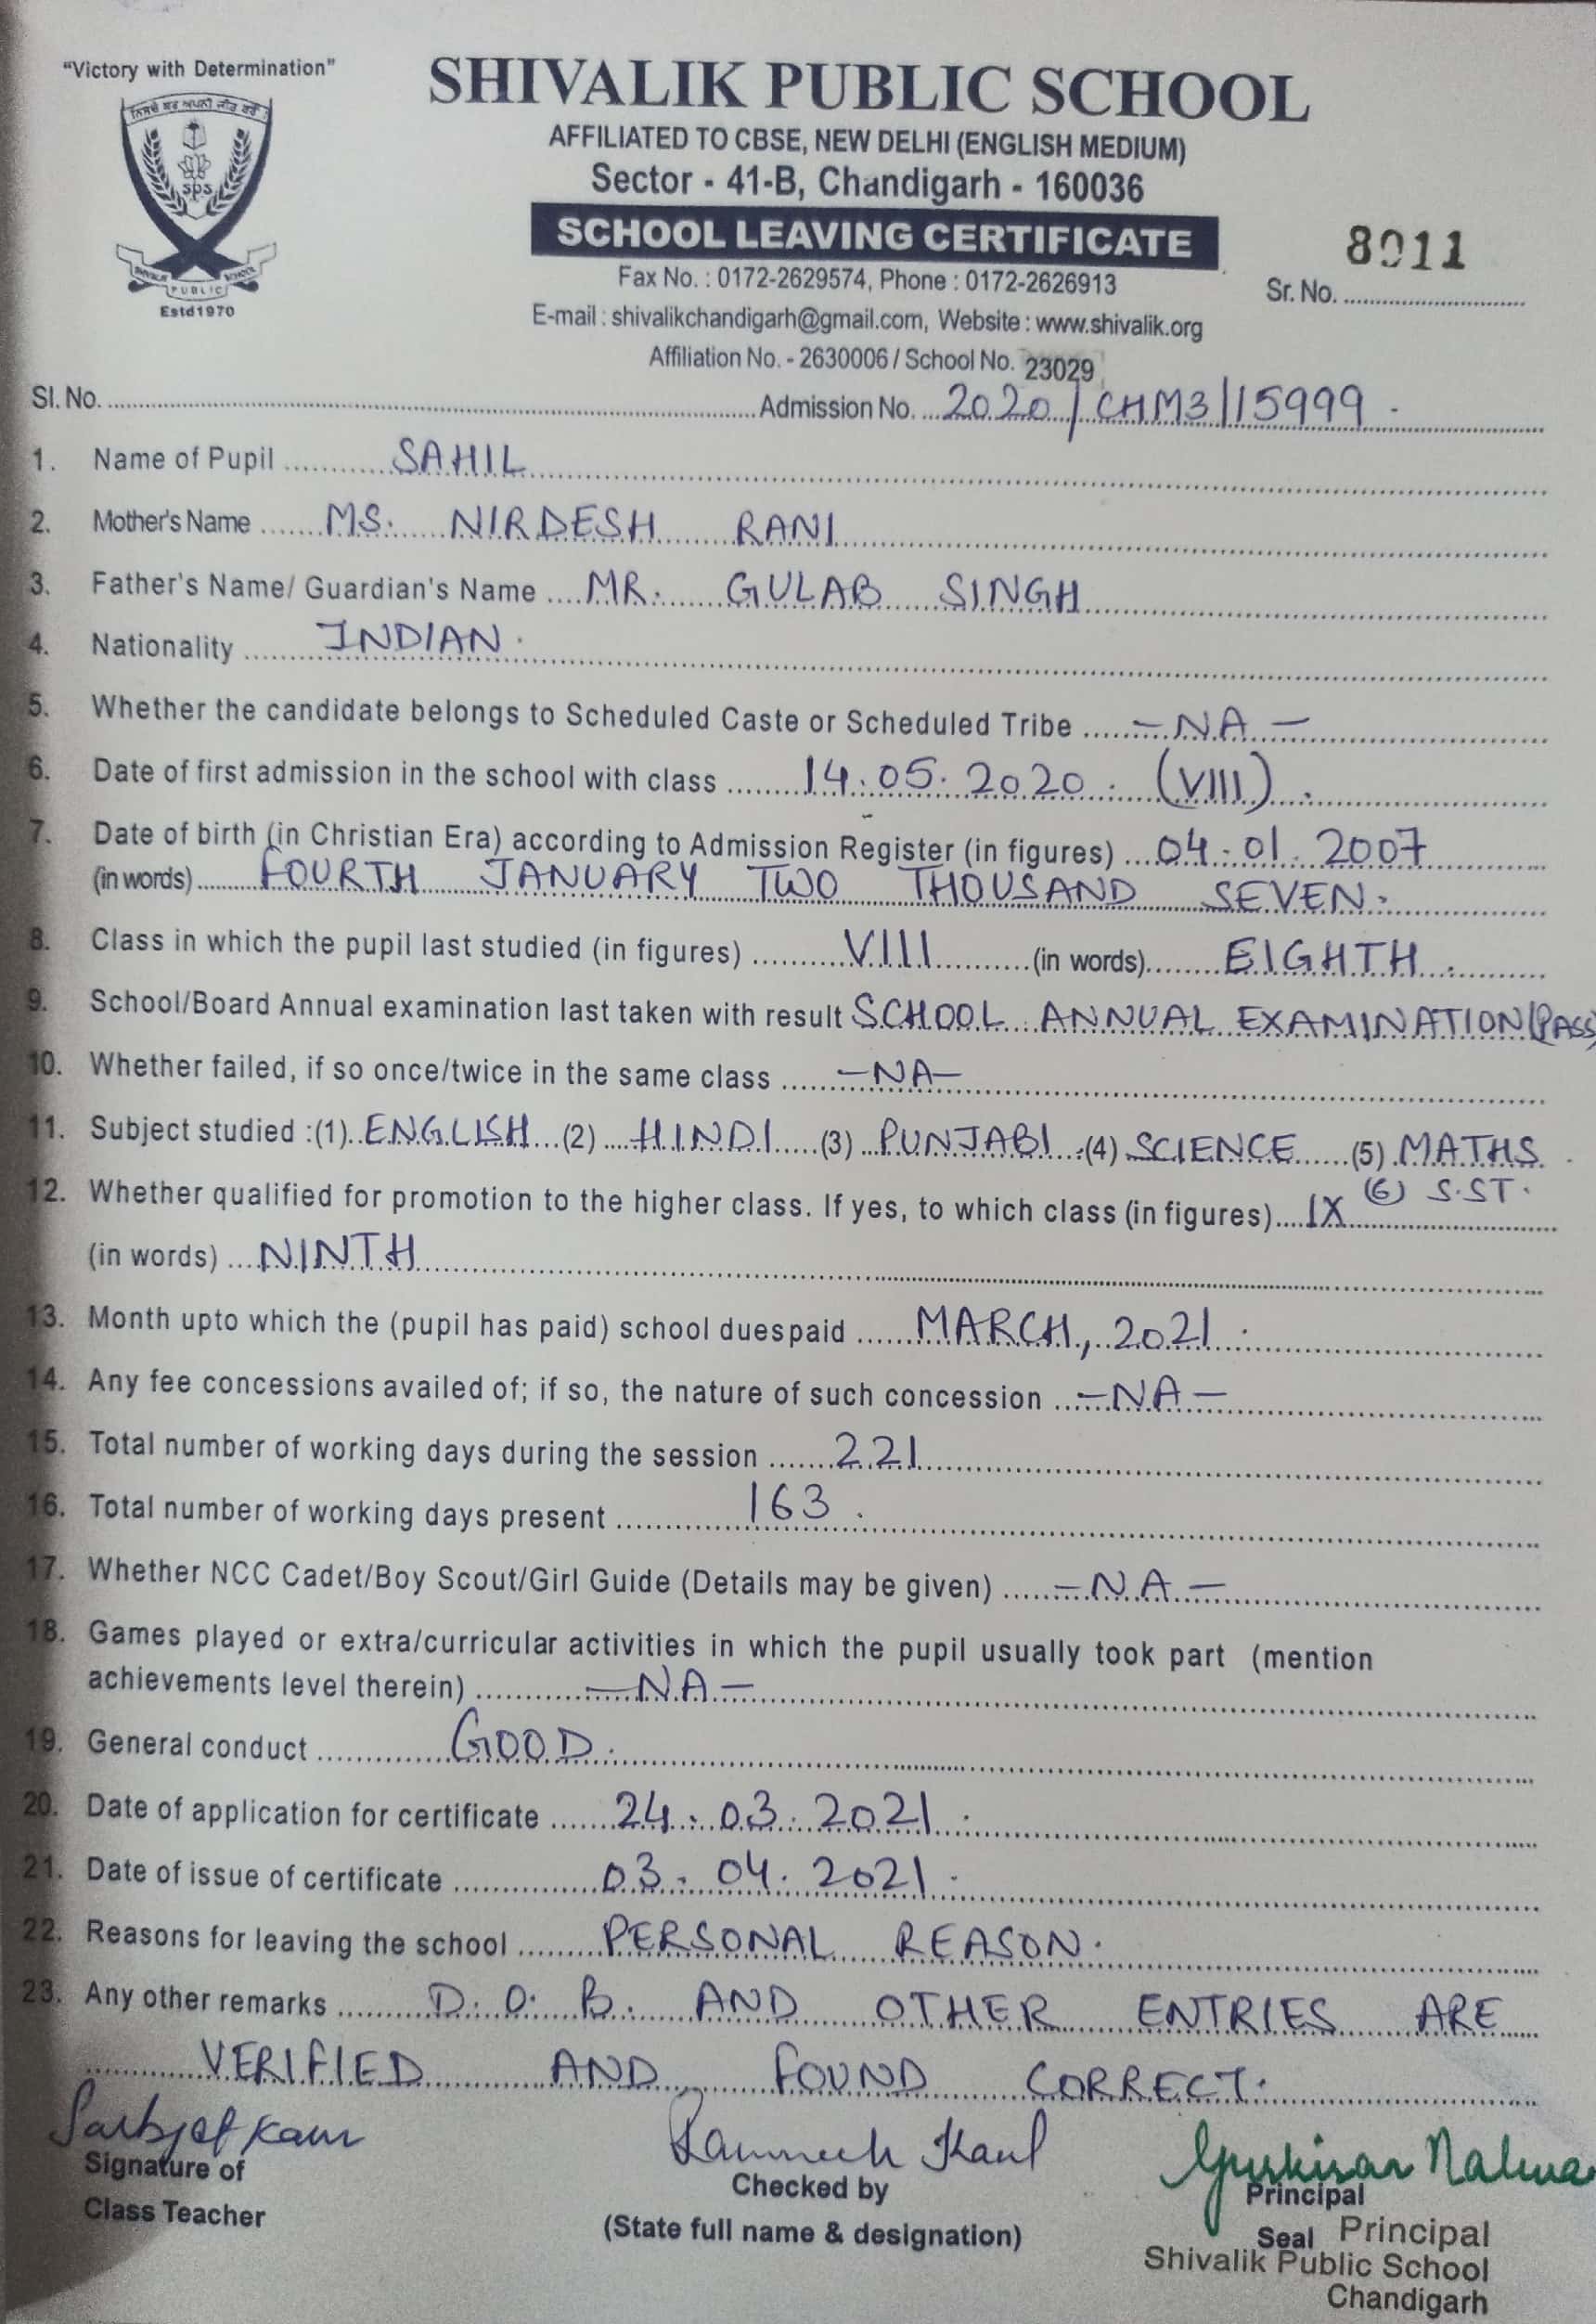 "Victory with Determination"
SHIVALIK PUBLIC SCHOOL
AFFILIATED TO CBSE, NEW DELHI (ENGLISH MEDIUM)
Sector - 41-B, Chandigarh - 160036
SCHOOL LEAVING CERTIFICATE
8011
Sr. No.
Fax No. : 0172-2629574, Phone : 0172-2626913
E-mail : shivalikchandigarh@gmail.com, Website : www.shivalik.org
Affiliation No. - 2630006 / School No. 23029
sps
SHIVALIK PUBLIC SCHOOL
Estd1970
Sl. No. Admission No. 2020/CHM3/15999.
1. Name of Pupil SAHIL
2. Mother's Name MS. NIRDESH RANI
3. Father's Name/ Guardian's Name MR. GULAB SINGH
4. Nationality INDIAN.
5. Whether the candidate belongs to Scheduled Caste or Scheduled Tribe -NA-
6. Date of first admission in the school with class 14.05.2020. (VIII).
7. Date of birth (in Christian Era) according to Admission Register (in figures) 04.01.2007
(in words) FOURTH JANUARY TWO THOUSAND SEVEN.
8. Class in which the pupil last studied (in figures) VIII (in words) EIGHTH.
9. School/Board Annual examination last taken with result SCHOOL ANNUAL EXAMINATION(PASS)
10. Whether failed, if so once/twice in the same class -NA-
11. Subject studied :(1) ENGLISH (2) HINDI (3) PUNJABI (4) SCIENCE (5) MATHS.
(6) S.ST.
12. Whether qualified for promotion to the higher class. If yes, to which class (in figures) IX
(in words) NINTH
13. Month upto which the (pupil has paid) school duespaid MARCH, 2021.
14. Any fee concessions availed of; if so, the nature of such concession -NA-
15. Total number of working days during the session 221
16. Total number of working days present 163.
17. Whether NCC Cadet/Boy Scout/Girl Guide (Details may be given) -NA-
18. Games played or extra/curricular activities in which the pupil usually took part (mention
achievements level therein) -NA-
19. General conduct GOOD.
20. Date of application for certificate 24.03.2021.
21. Date of issue of certificate 03.04.2021.
22. Reasons for leaving the school PERSONAL REASON.
23. Any other remarks D.O.B. AND OTHER ENTRIES ARE
VERIFIED AND FOUND CORRECT.
Sarbjet Kaur
Signature of
Class Teacher
Kaul
Checked by
(State full name & designation)
Gurkiran Nalwa
Principal
Seal Principal
Shivalik Public School
Chandigarh